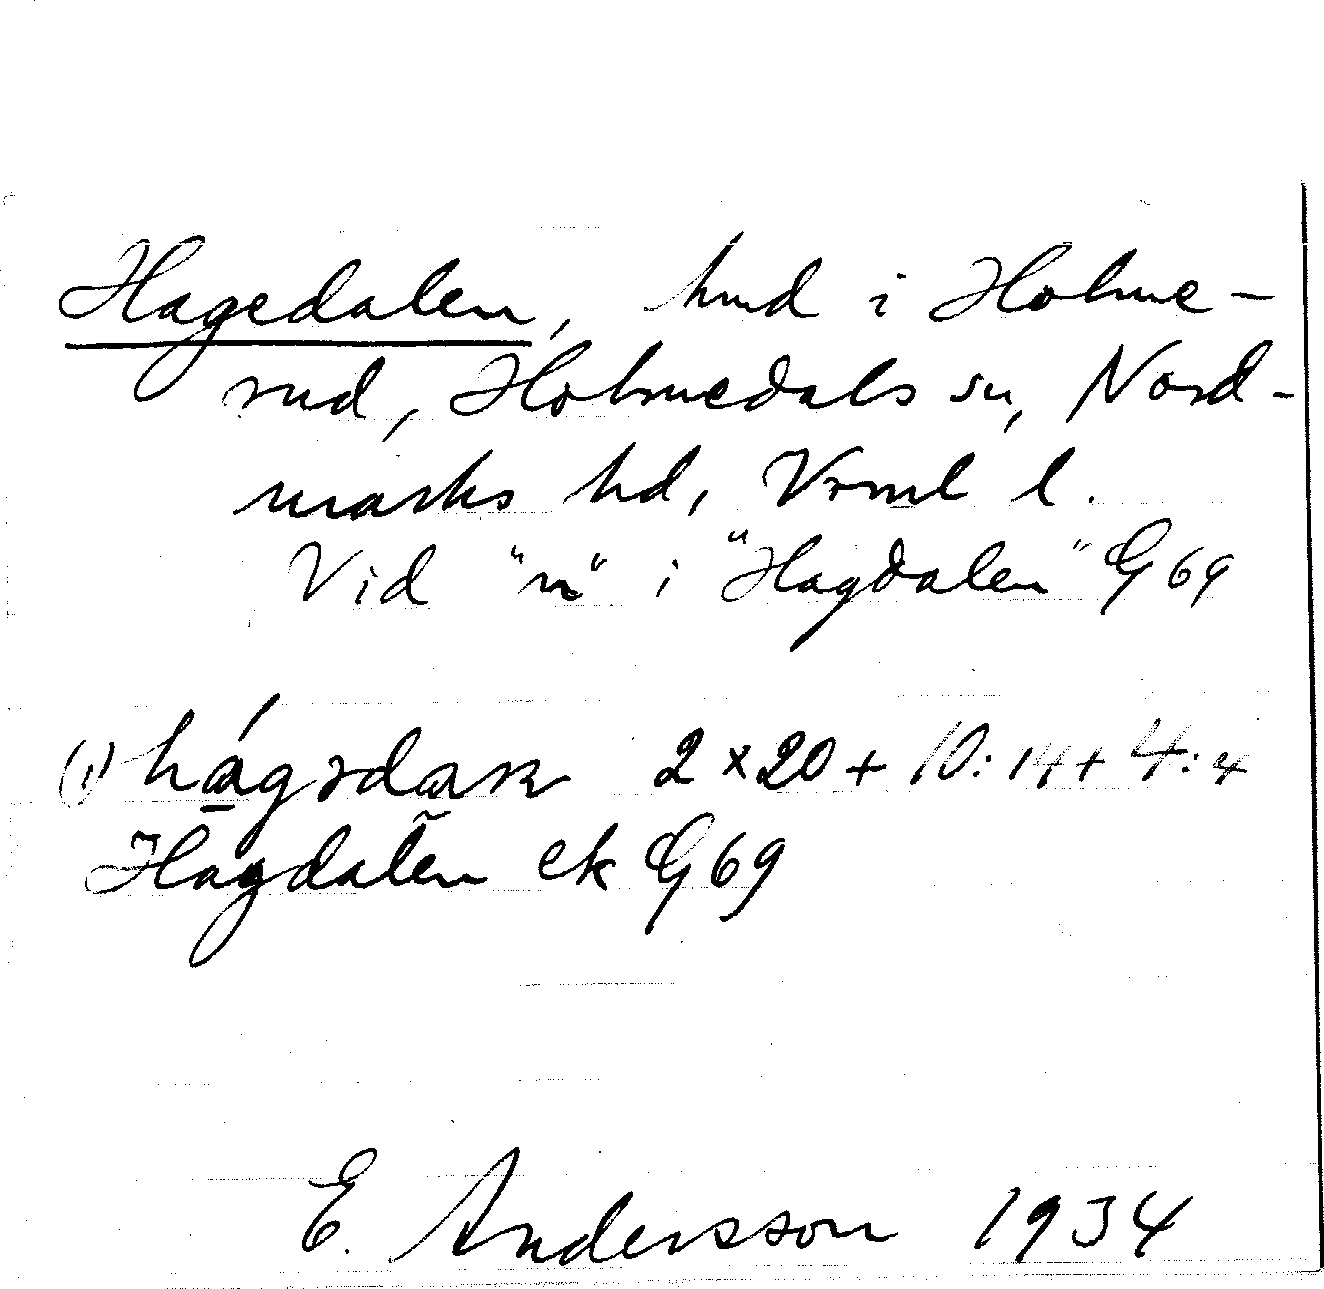 Hagedalen, hmd i Holme-
rud, Holmedals sn, Nord-
marks hd, Vrml l.
Vid "n" i "Hagdalen" G 69
(i) 2 x 20 + 10:14 + 4:4
Hagdalen ek G 69
E. Andersson 1934